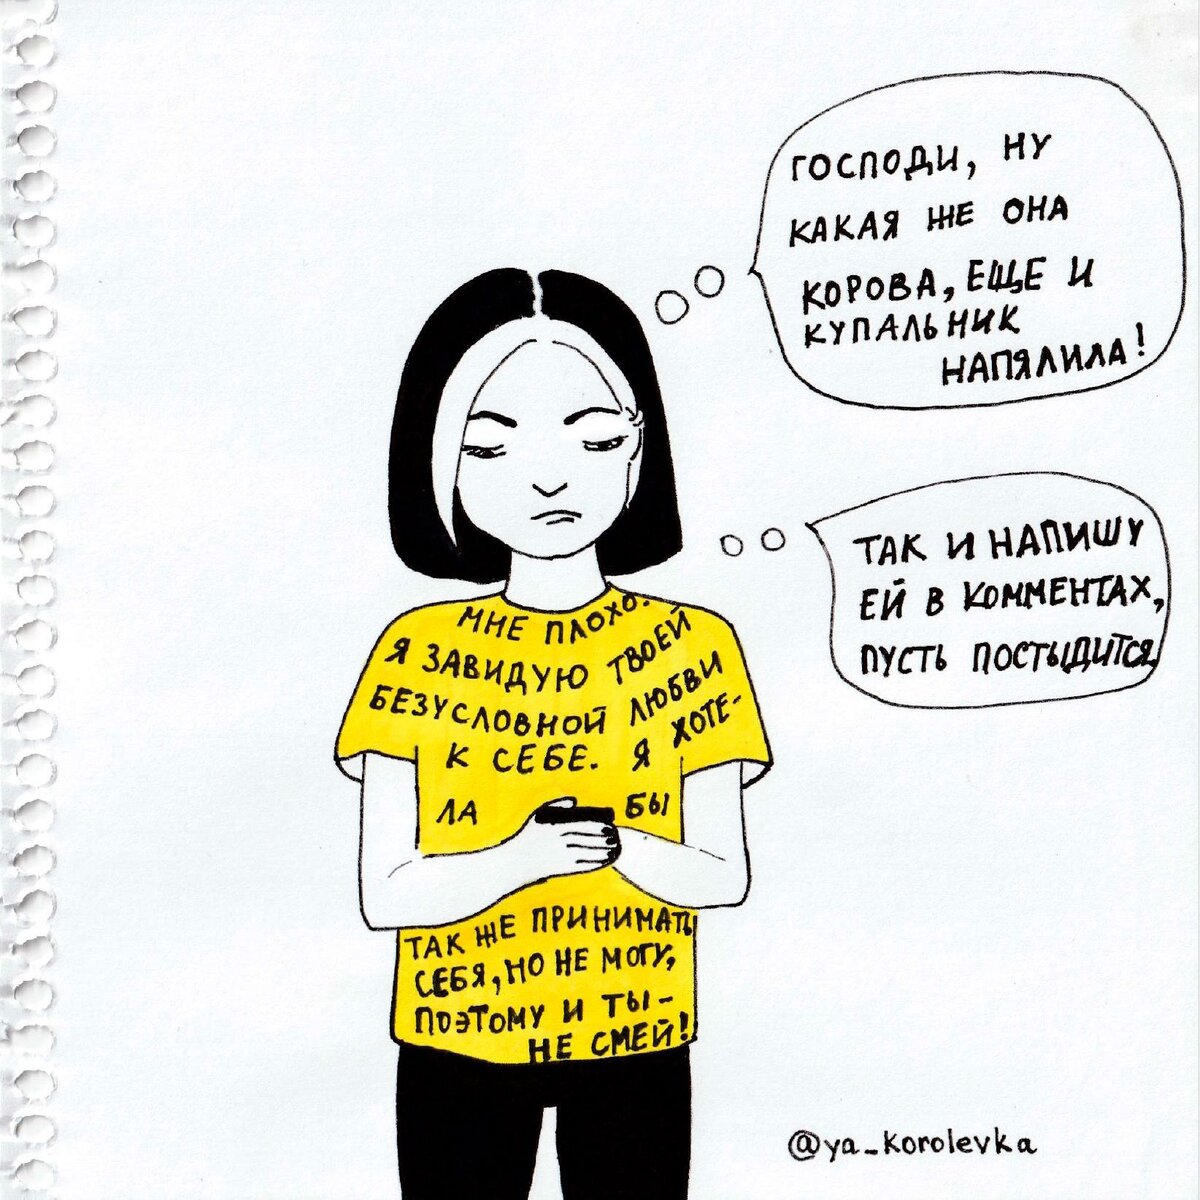 ГОСПОДИ, НУ
КАКАЯ ЖЕ ОНА
КОРОВА, ЕЩЕ И
КУПАЛЬНИК
НАПЯЛИЛА!
ТАК И НАПИШУ
ЕЙ В КОММЕНТАХ,
ПУСТЬ ПОСТЫДИТСЯ
МНЕ ПЛОХО.
Я ЗАВИДУЮ ТВОЕЙ
БЕЗУСЛОВНОЙ ЛЮБВИ
К СЕБЕ. Я ХОТЕ-
ЛА БЫ
ТАК ЖЕ ПРИНИМАТЬ
СЕБЯ, НО НЕ МОГУ,
ПОЭТОМУ И ТЫ -
НЕ СМЕЙ!
@ya_korolevka